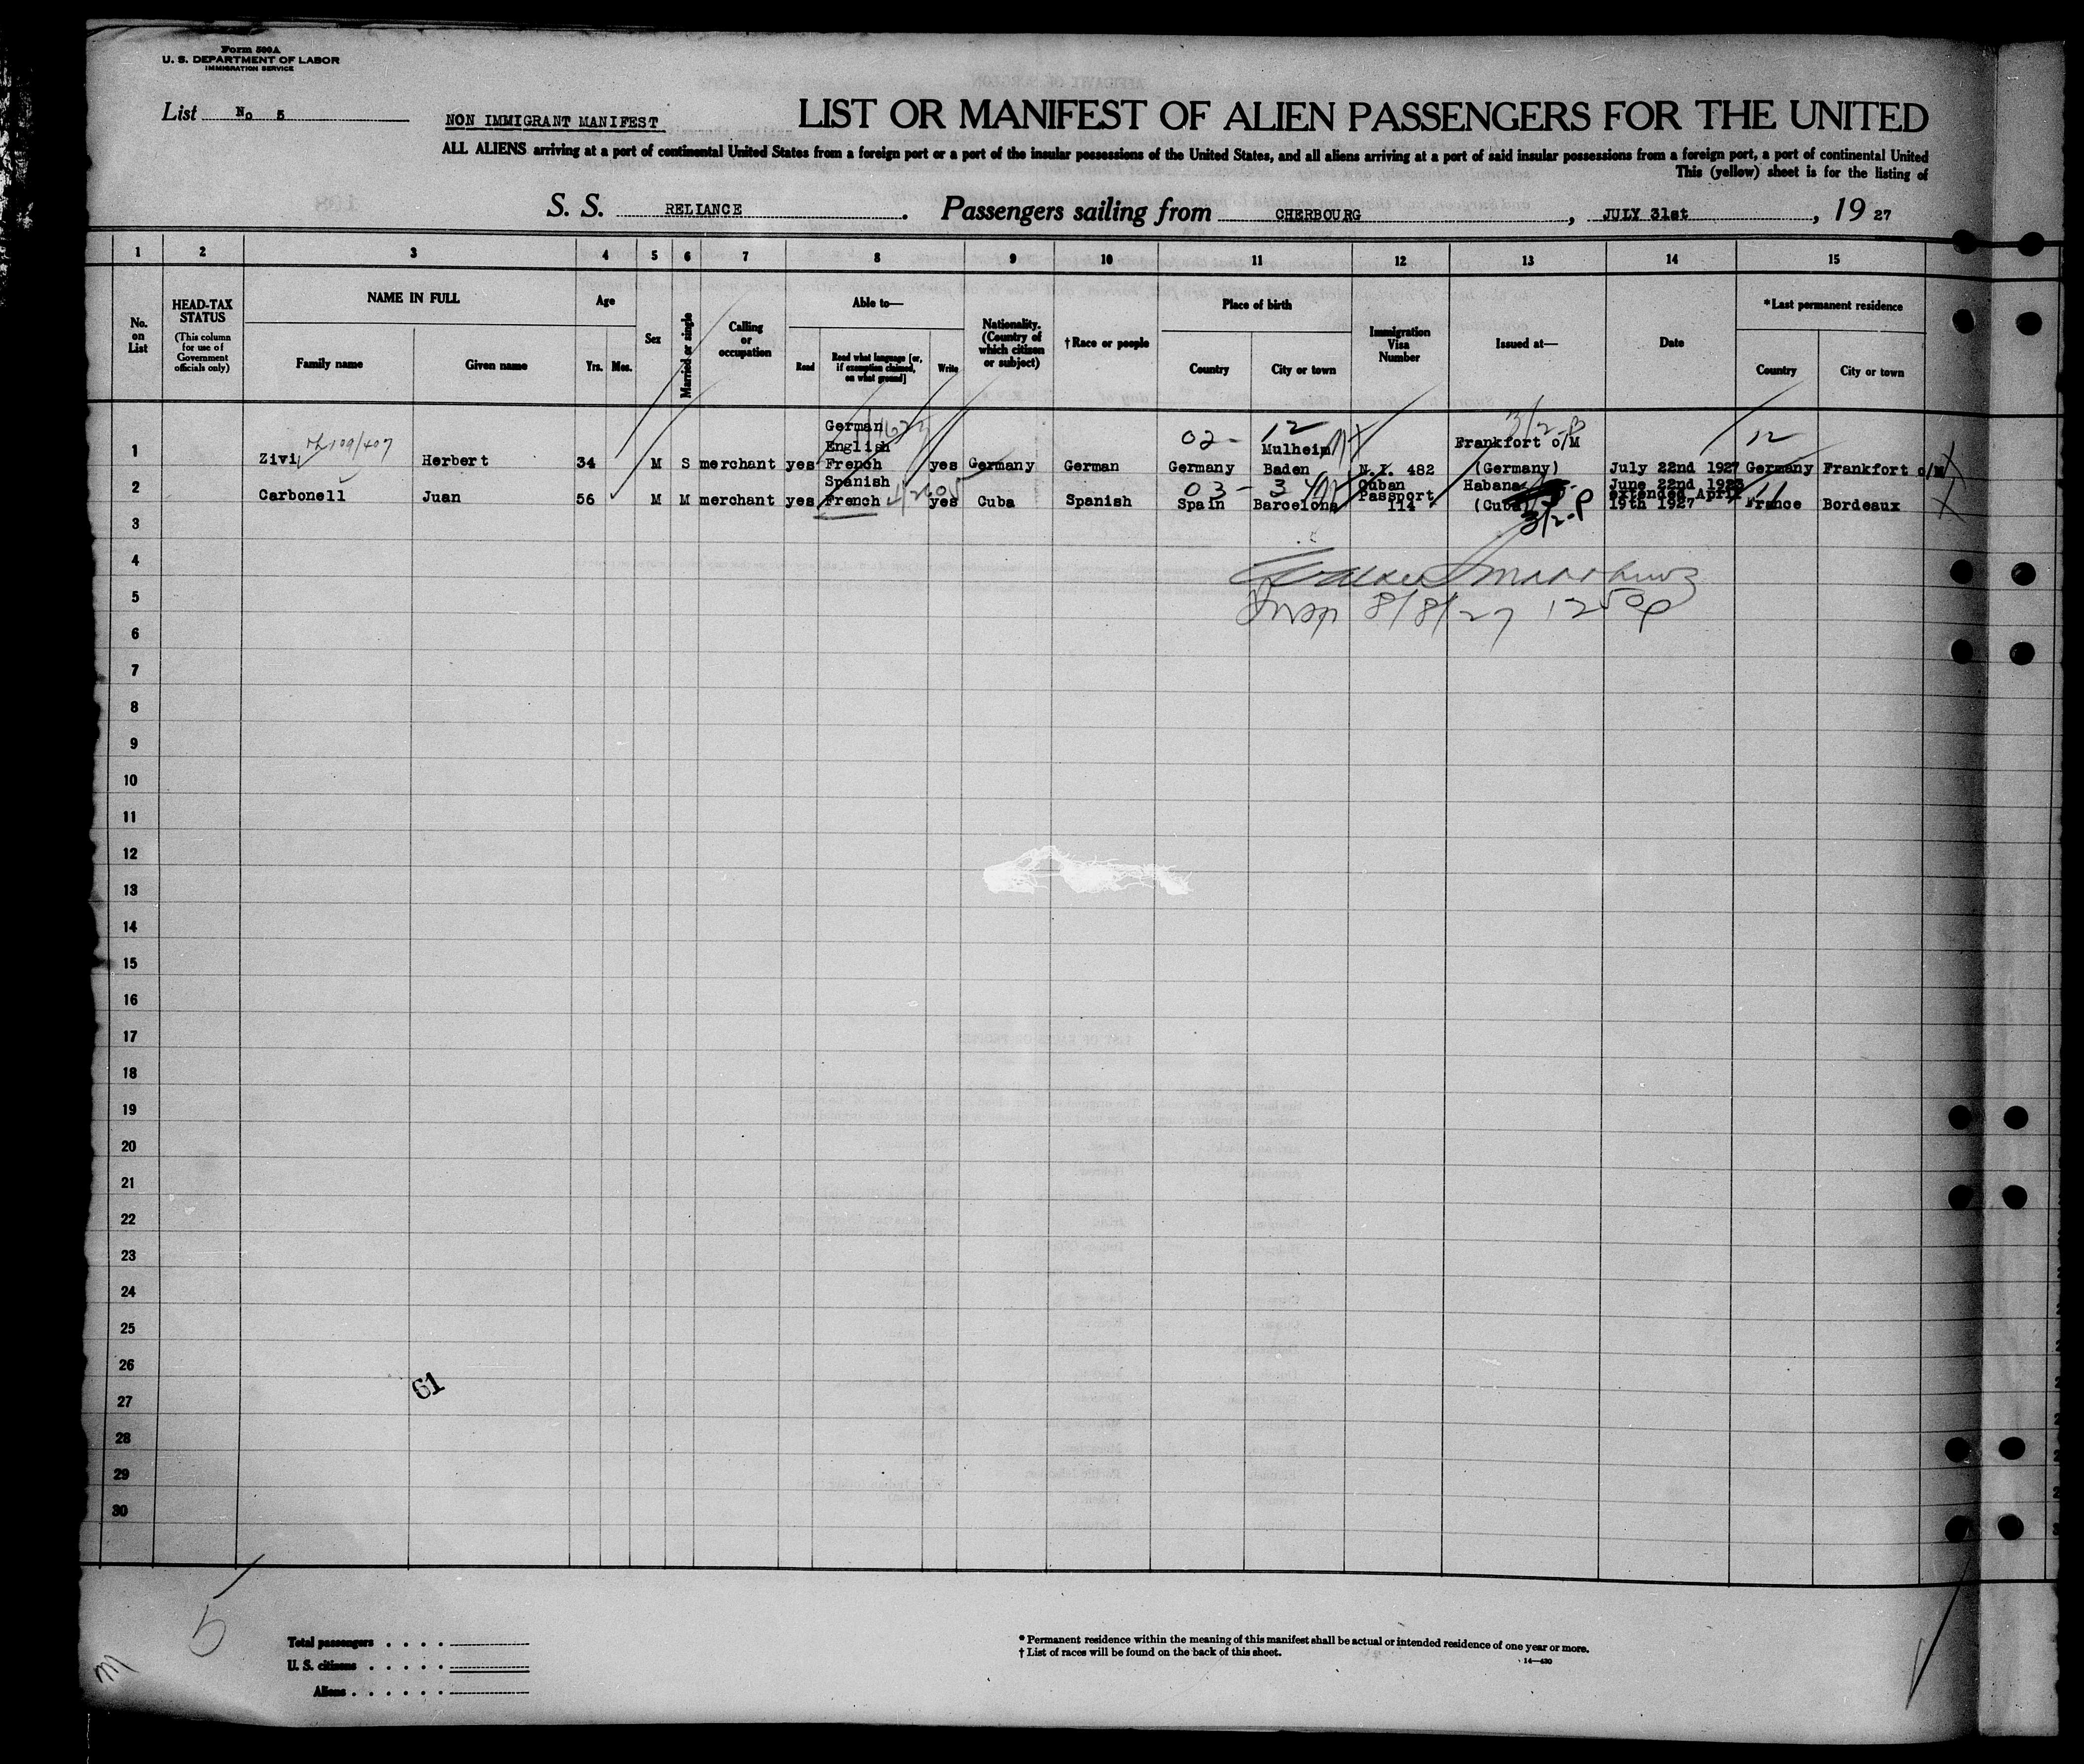 Form 500A
U. S. DEPARTMENT OF LABOR
IMMIGRATION SERVICE
List No 5
NON IMMIGRANT MANIFEST
LIST OR MANIFEST OF ALIEN PASSENGERS FOR THE UNITED
ALL ALIENS arriving at a port of continental United States from a foreign port or a port of the insular possessions of the United States, and all aliens arriving at a port of said insular possessions from a foreign port, a port of continental United
This (yellow) sheet is for the listing of
S. S. RELIANCE. Passengers sailing from CHERBOURG, JULY 31st, 19 27
1 2 3 4 5 6 7 8 9 10 11 12 13 14 15
No. on List
HEAD-TAX STATUS
(This column for use of Government officials only)
NAME IN FULL
Family name Given name
Age
Yrs. Mos.
Sex
Married or single
Calling or occupation
Able to—
Read Read what language [or, if exemption claimed, on what ground] Write
Nationality. (Country of which citizen or subject)
†Race or people
Place of birth
Country City or town
Immigration Visa Number
Issued at—
Date
*Last permanent residence
Country City or town
1 Zivi Herbert 34 M S merchant yes German English French yes Germany German Germany Mulheim Baden N.I. 482 Frankfort o/M (Germany) July 22nd 1927 Germany Frankfort o/M
02- 12 3/2-P 12
2 Carbonell Juan 56 M M merchant yes Spanish French yes Cuba Spanish Spain Barcelona Cuban Passport 114 Habana (Cuba) June 22nd 1923 extended April 19th 1927 France Bordeaux
03- 3 3/2-P 11
3
4
5
Insp 8/8/27 1250p
6
7
8
9
10
11
12
13
14
15
16
17
18
19
20
21
22
23
24
25
26
61
27
28
29
30
5
M
Total passengers . . . .
U. S. citizens . . . . .
Aliens . . . . . .
* Permanent residence within the meaning of this manifest shall be actual or intended residence of one year or more.
† List of races will be found on the back of this sheet.
14—430